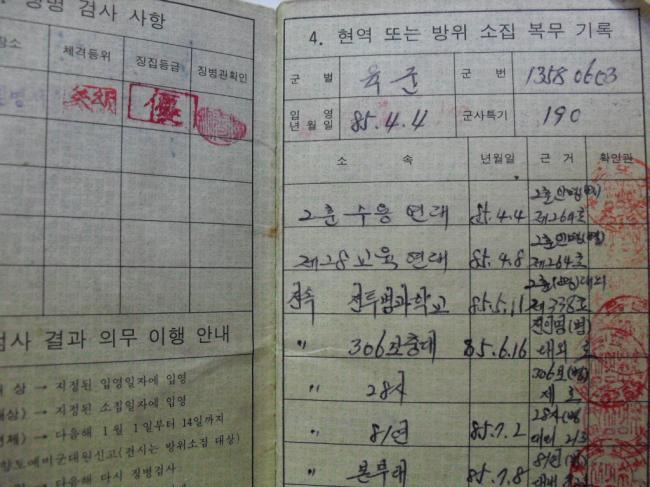 징병 검사 사항
장소 체격등위 징집등급 징병관확인
優
검사 결과 의무 이행 안내
상 → 지정된 입영일자에 입영
대상) → 지정된 소집일자에 입영
면제) → 다음해 1월 1일부터 14일까지
향토예비군대원신고(전시는 방위소집 대상)
→ 다음해 다시 징병검사
4. 현역 또는 방위 소집 복무 기록
군 별 육군 군 번 13580603
입영 년월일 85.4.4 군사특기 190
소 속 년월일 근 거 확인관
2훈 수용 연대 85.4.4 제264호
제28교육 연대 85.4.8 제264호
전속 전투병과학교 85.5.11 제338호
〃 306보충대 85.6.16
〃 28사 306보(병) 제 호
〃 81연 85.7.2 28사(병)
〃 본부대 85.7.8 81연(병)